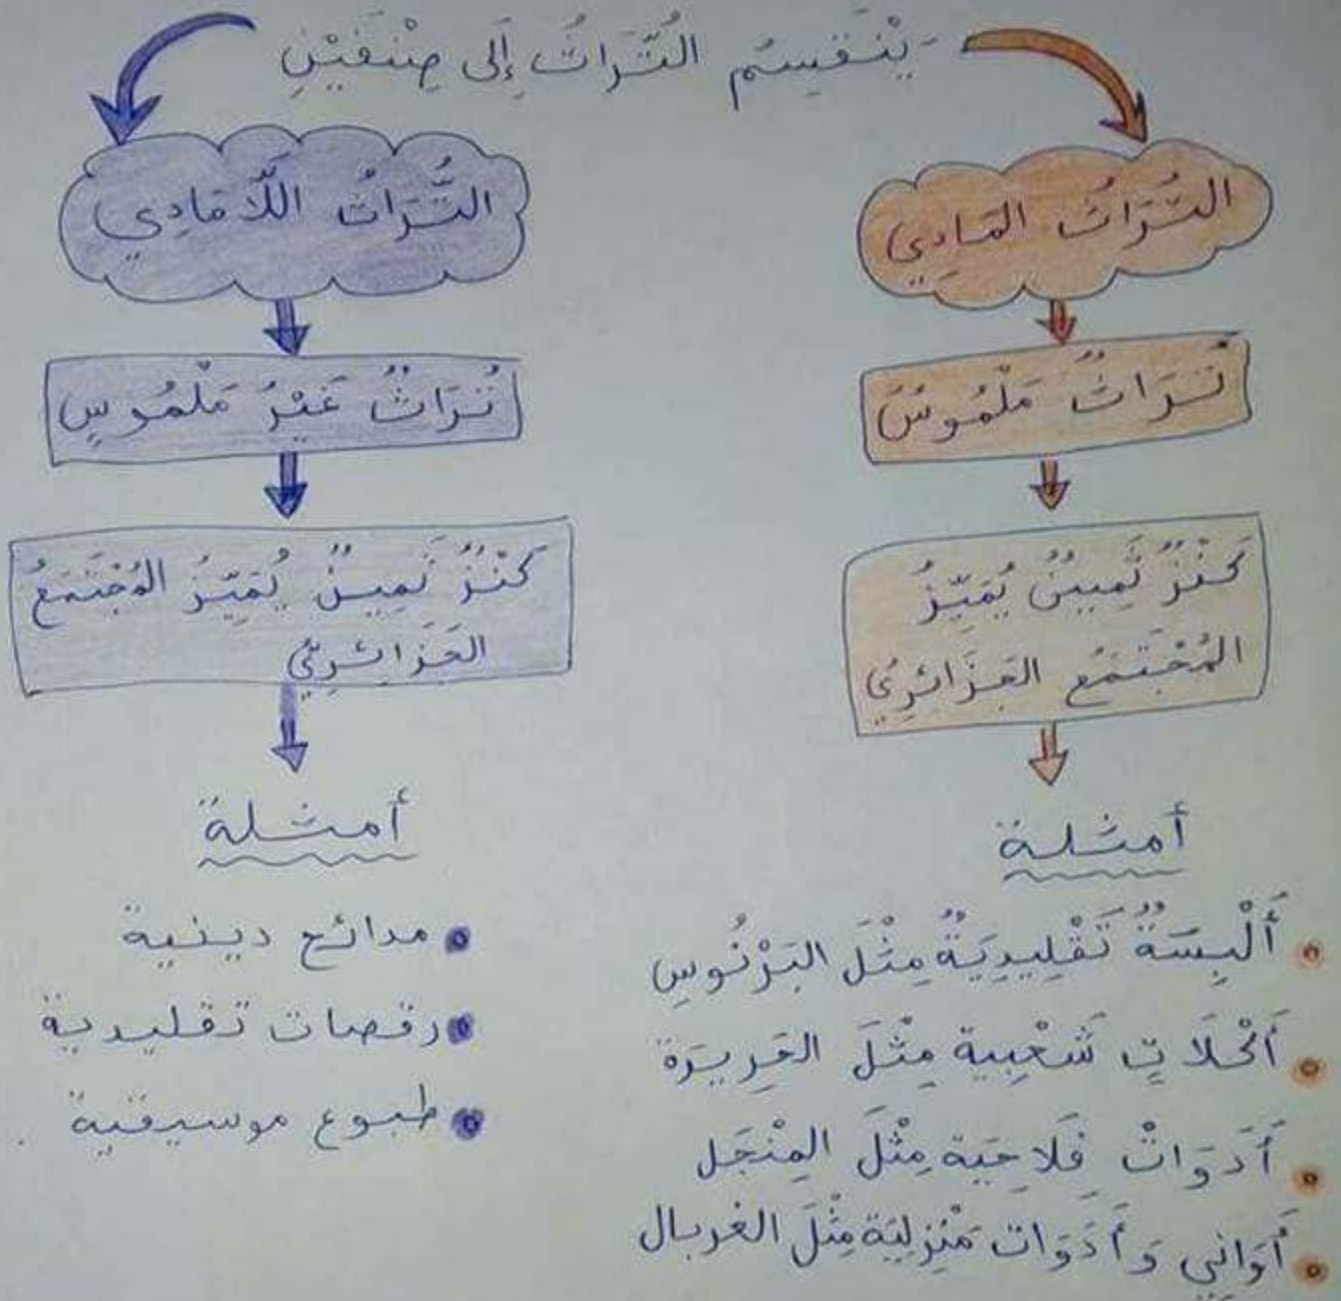 يَنْقَسِمُ التُّرَاثُ إِلَى صِنْفَيْنِ
التُّرَاثُ المَادِي
تُرَاثٌ مَلْمُوسٌ
كَنْزٌ ثَمِينٌ يُمَيِّزُ
المُجْتَمَع الجَزَائرِيُّ
أمثلة
أَلْبِسَةٌ تَقْلِيدِيَةٌ مِثْلَ البَرْنُوسِ
أَكْلَاتٍ شَعْبِية مِثْلَ الحَرِيرَة
أَدَوَاتْ فَلاحِيَة مِثْلَ المِنْجَل
أَوَانِي وَأَدَوَات مَنْزِليَة مِثْلَ الغربال
التُّرَاثُ اللَّامَادِي
تُرَاثٌ غَيْرُ مَلْمُوسٍ
كَنْزٌ ثَمِينٌ يُمَيِّزُ المُجْتَمَعُ
الجَزَائِرِيَّ
أمثلة
مدائح دينية
رقصات تقليدية
طبوع موسيقية